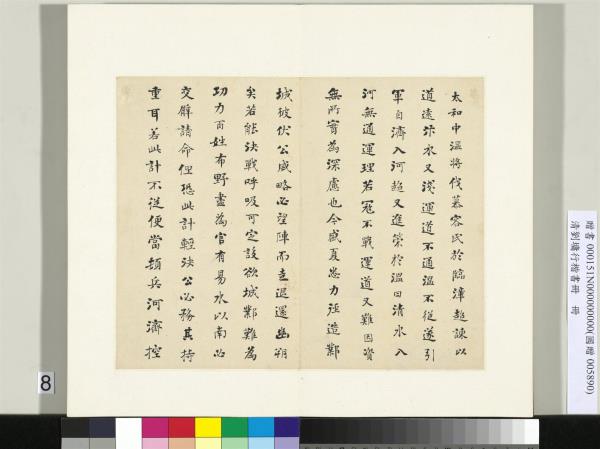 太和中溫將伐慕容氏於臨漳超諫以
道遠汴水又淺運道不通溫不從遂引
軍自濟入河超又進策於溫曰清水入
河無通運理若寇不戰運道又難因資
無所實為深慮也今盛夏悉力徑造鄴
城彼伏公威略必望陣而走退還幽朔
矣若能決戰呼吸可定設欲城鄴難為
功力百姓布野盡為官有易水以南必
交臂請命但恐此計輕決公必務其持
重耳若此計不從便當頓兵河濟控
贈書 000151N000000000(國贈 005890)
清劉墉行楷書冊 冊
8